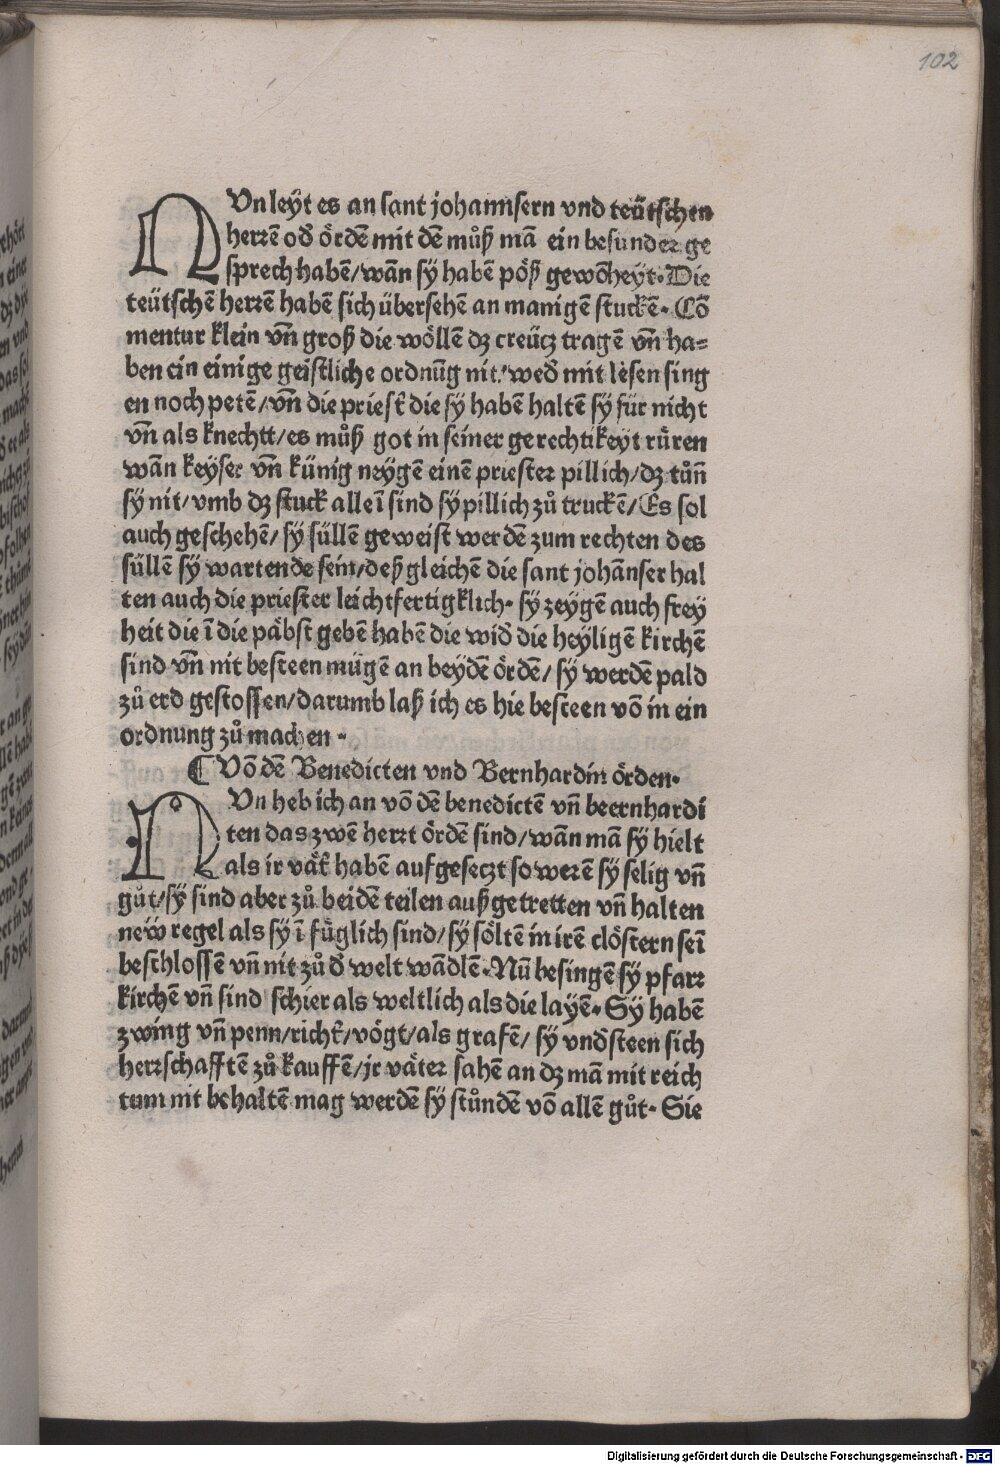 102
NUn leÿt es an sant johannsern vnd teütschen
herrē od̄ ördē mit dē můß mā ein besunder ge
sprech habē/wān sÿ habē pöß gewōheÿt. Die
teütschē herrē habē sich übersehē an manigē stuckē. Cō
mentur klein vn̄ groß die wöllē dz creücz tragē vn̄ ha=
ben ein einige geistliche ordnūg nit/wed̄ mit lesen sing
en noch petē/vn̄ die priest̄ die sÿ habē haltē sÿ für nicht
vn̄ als knechtt/es můß got in seiner gerechtikeyt rüren
wān keyser vn̄ künig neÿgē einē priester pillich/dz tůn̄
sÿ nit/vmb dz stuck alleī sind sÿ pillich zů truckē/Es sol
auch geschehē/sÿ süllē geweist werdē zum rechten des
süllē sÿ wartende sein/deß gleichē die sant johānser hal
ten auch die priester leichtfertigklich. sÿ zeÿgē auch frey
heit die ī die päbst gebē habē die wid̄ die heÿligē kirchē
sind vn̄ nit besteen mügē an beÿdē ördē/sÿ werdē pald
zů erd gestossen/darumb laß ich es hie besteen vō in ein
ordnung zů machen.
¶ Vō dē Benedicten vnd Bernhardin örden.
NUn heb ich an vō dē benedictē vn̄ beernhardī
ten das zwē herrt ördē sind/wān mā sÿ hielt
als ir vät̄ habē aufgeseczt so werē sÿ selig vn̄
gůt/sÿ sind aber zů beidē teilen außgetretten vn̄ halten
neẅ regel als sÿ ī füglich sind/sÿ söltē in irē clöstern seī
beschlossē vn̄ nit zů d̄ welt wādlē. Nū besingē sÿ pfarr
kirchē vn̄ sind schier als weltlich als die layē. Sy habē
zwing vn̄ penn/richt̄/vögt/als grafē/sÿ vnd̄steen sich
herrschafftē zů kauffē/jr väter sahē an dz mā mit reich
tum nit behaltē mag werdē sÿ stůndē vō allē gůt. Sie
Digitalisierung gefördert durch die Deutsche Forschungsgemeinschaft - DFG